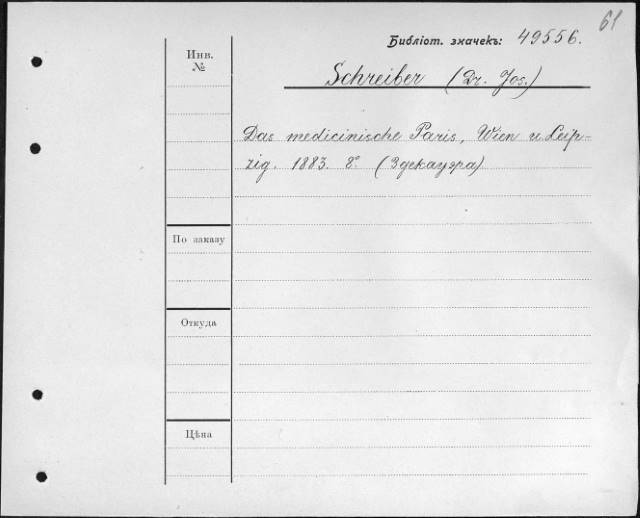 61
Библіот. значекъ: 49556.
Инв.
№
Schreiber (Dr. Jos.)
Das medicinische Paris, Wien u. Leip-
zig. 1883. 8°. (Здекауэра)
По заказу
Откуда
Цѣна